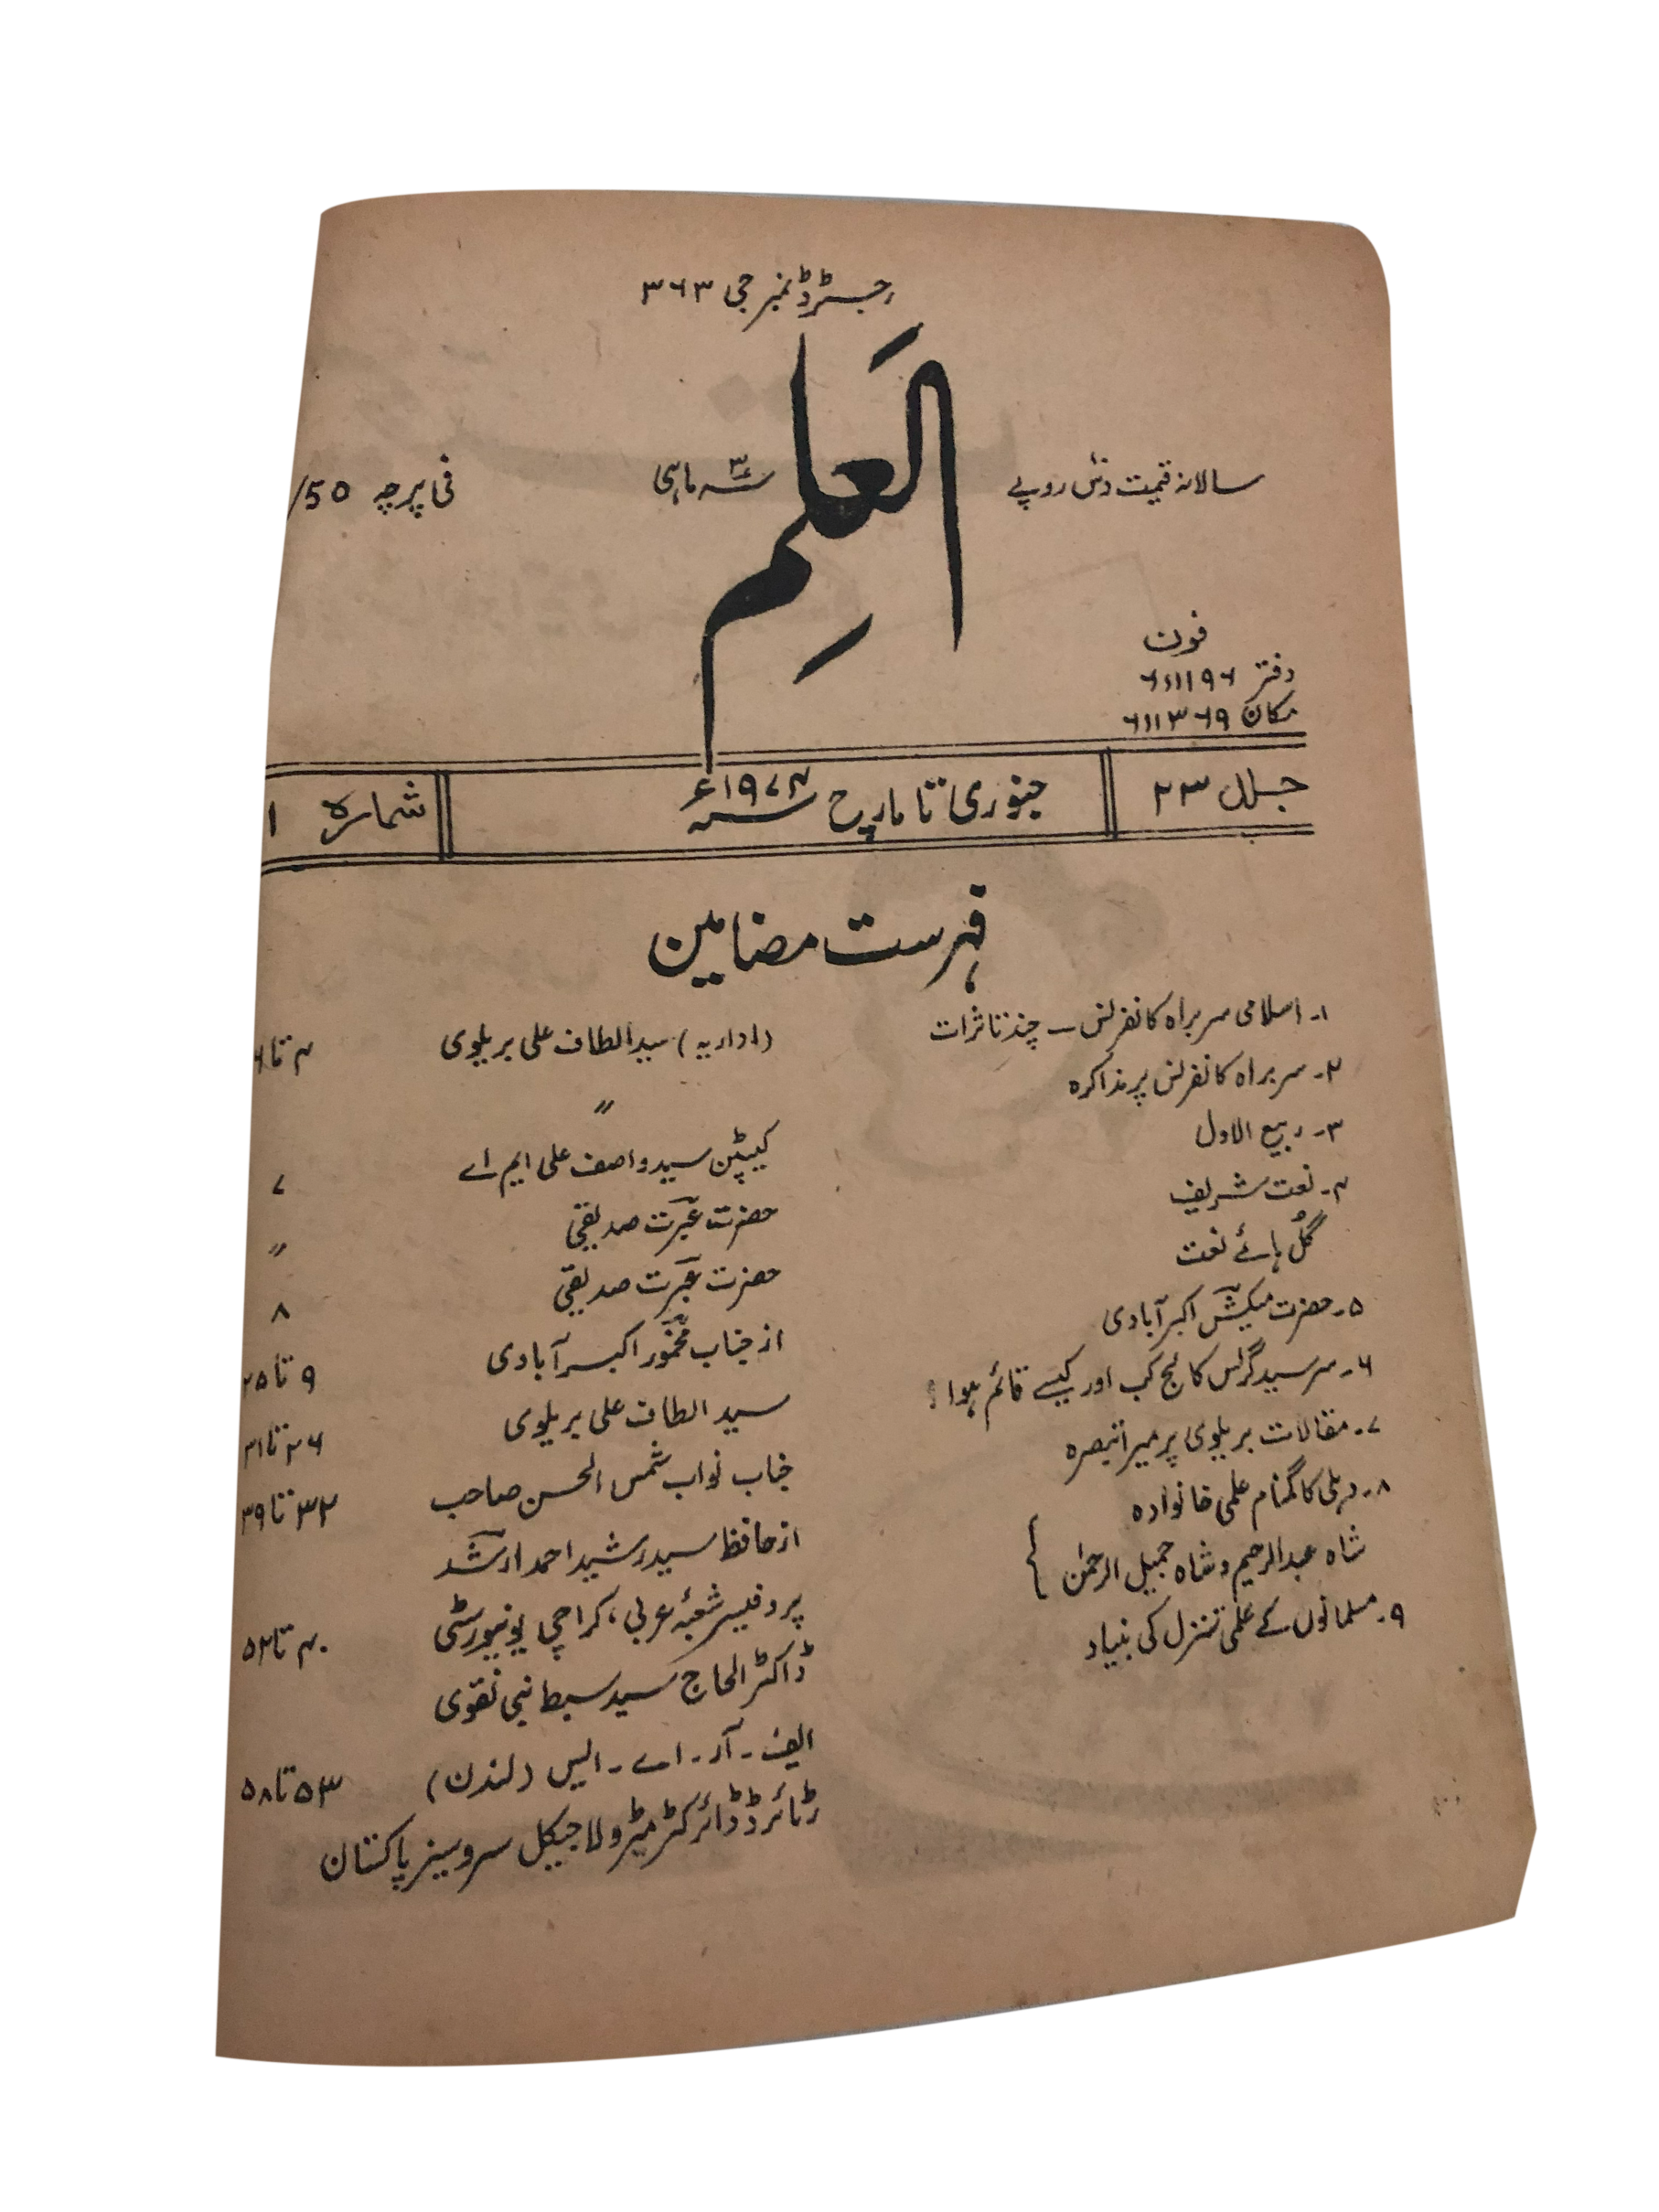 رجسٹرڈ نمبر جی ۳۶۳
العلم
سالانہ قیمت دس روپے
سہ ماہی
فی پرچہ 50/
فون
دفتر ۶۱۱۱۹۶
مکان ۶۱۱۳۶۹
جلد ۲۳ جنوری تا مارچ ۱۹۷۴ء شمارہ ۱
فہرست مضامین
۱۔ اسلامی سربراہ کانفرنس ۔ چند تاثرات (اداریہ) سید الطاف علی بریلوی ۴ تا ۶
۲۔ سربراہ کانفرنس پر مذاکرہ 〃
۳۔ ربیع الاول کیپٹن سید واصف علی ایم اے ۷
۴۔ نعت شریف حضرت عبرت صدیقی 〃
گل ہائے نعت حضرت عبرت صدیقی ۸
۵۔ حضرت میکش اکبرآبادی از جناب مخمور اکبرآبادی ۹ تا ۲۵
۶۔ سرسید گرلس کالج کب اور کیسے قائم ہوا؟ سید الطاف علی بریلوی ۲۶ تا ۳۱
۷۔ مقالات بریلوی پر میرا تبصرہ جناب نواب شمس الحسن صاحب ۳۲ تا ۳۹
۸۔ دہلی کا گمنام علمی خانوادہ از حافظ سید رشید احمد ارشد
شاہ عبدالرحیم و شاہ جمیل الرحمٰن پروفیسر شعبۂ عربی، کراچی یونیورسٹی ۴۰ تا ۵۲
۹۔ مسلمانوں کے علمی تنزل کی بنیاد ڈاکٹر الحاج سید سبط نبی نقوی
ایف۔ آر۔ اے۔ ایس (لندن) ۵۳ تا ۵۸
رٹائرڈ ڈائرکٹر میٹرولاجیکل سروسیز پاکستان